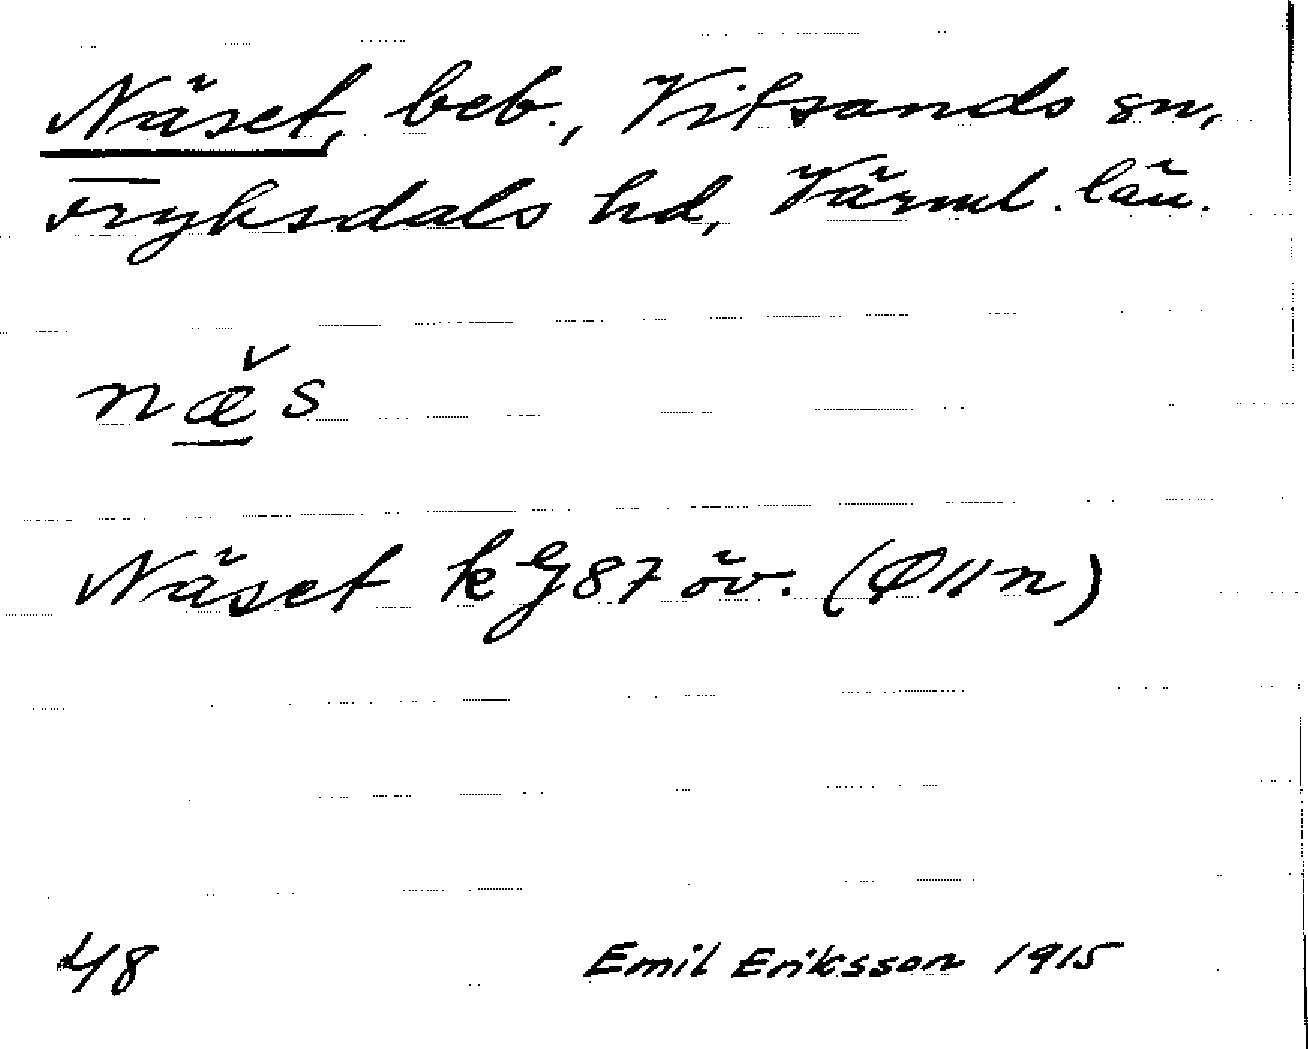 Näset, beb., Vitsands sn,
Fryksdals hd, Värml. län.
næ̌s
Näset kg 87 öv. (Ø 11 n)
48
Emil Eriksson 1915